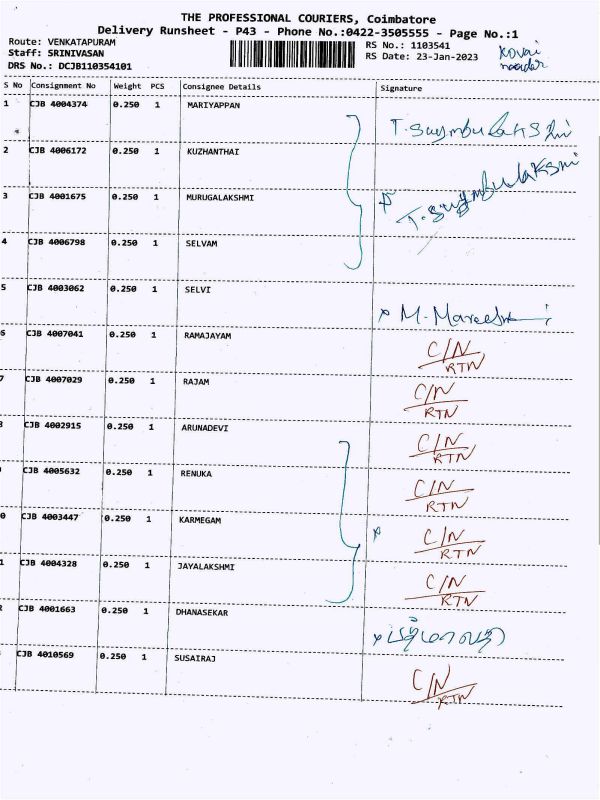 THE PROFESSIONAL COURIERS, Coimbatore
Delivery Runsheet - P43 - Phone No.:0422-3505555 - Page No.:1
Route: VENKATAPURAM RS No.: 1103541 Kovai
Staff: SRINIVASAN RS Date: 23-Jan-2023
DRS No.: DCJB110354101
S No Consignment No Weight PCS Consignee Details Signature
1 CJB 4004374 0.250 1 MARIYAPPAN T. Suymbulakshmi
2 CJB 4006172 0.250 1 KUZHANTHAI
3 CJB 4001675 0.250 1 MURUGALAKSHMI T. Suymbulakshmi
4 CJB 4006798 0.250 1 SELVAM
5 CJB 4003062 0.250 1 SELVI x M.
6 CJB 4007041 0.250 1 RAMAJAYAM C/N RTN
7 CJB 4007029 0.250 1 RAJAM C/N RTN
8 CJB 4002915 0.250 1 ARUNADEVI C/N RTN
CJB 4005632 0.250 1 RENUKA C/N RTN
0 CJB 4003447 0.250 1 KARMEGAM x C/N RTN
1 CJB 4004328 0.250 1 JAYALAKSHMI C/N RTN
2 CJB 4001663 0.250 1 DHANASEKAR x
CJB 4010569 0.250 1 SUSAIRAJ C/N RTN